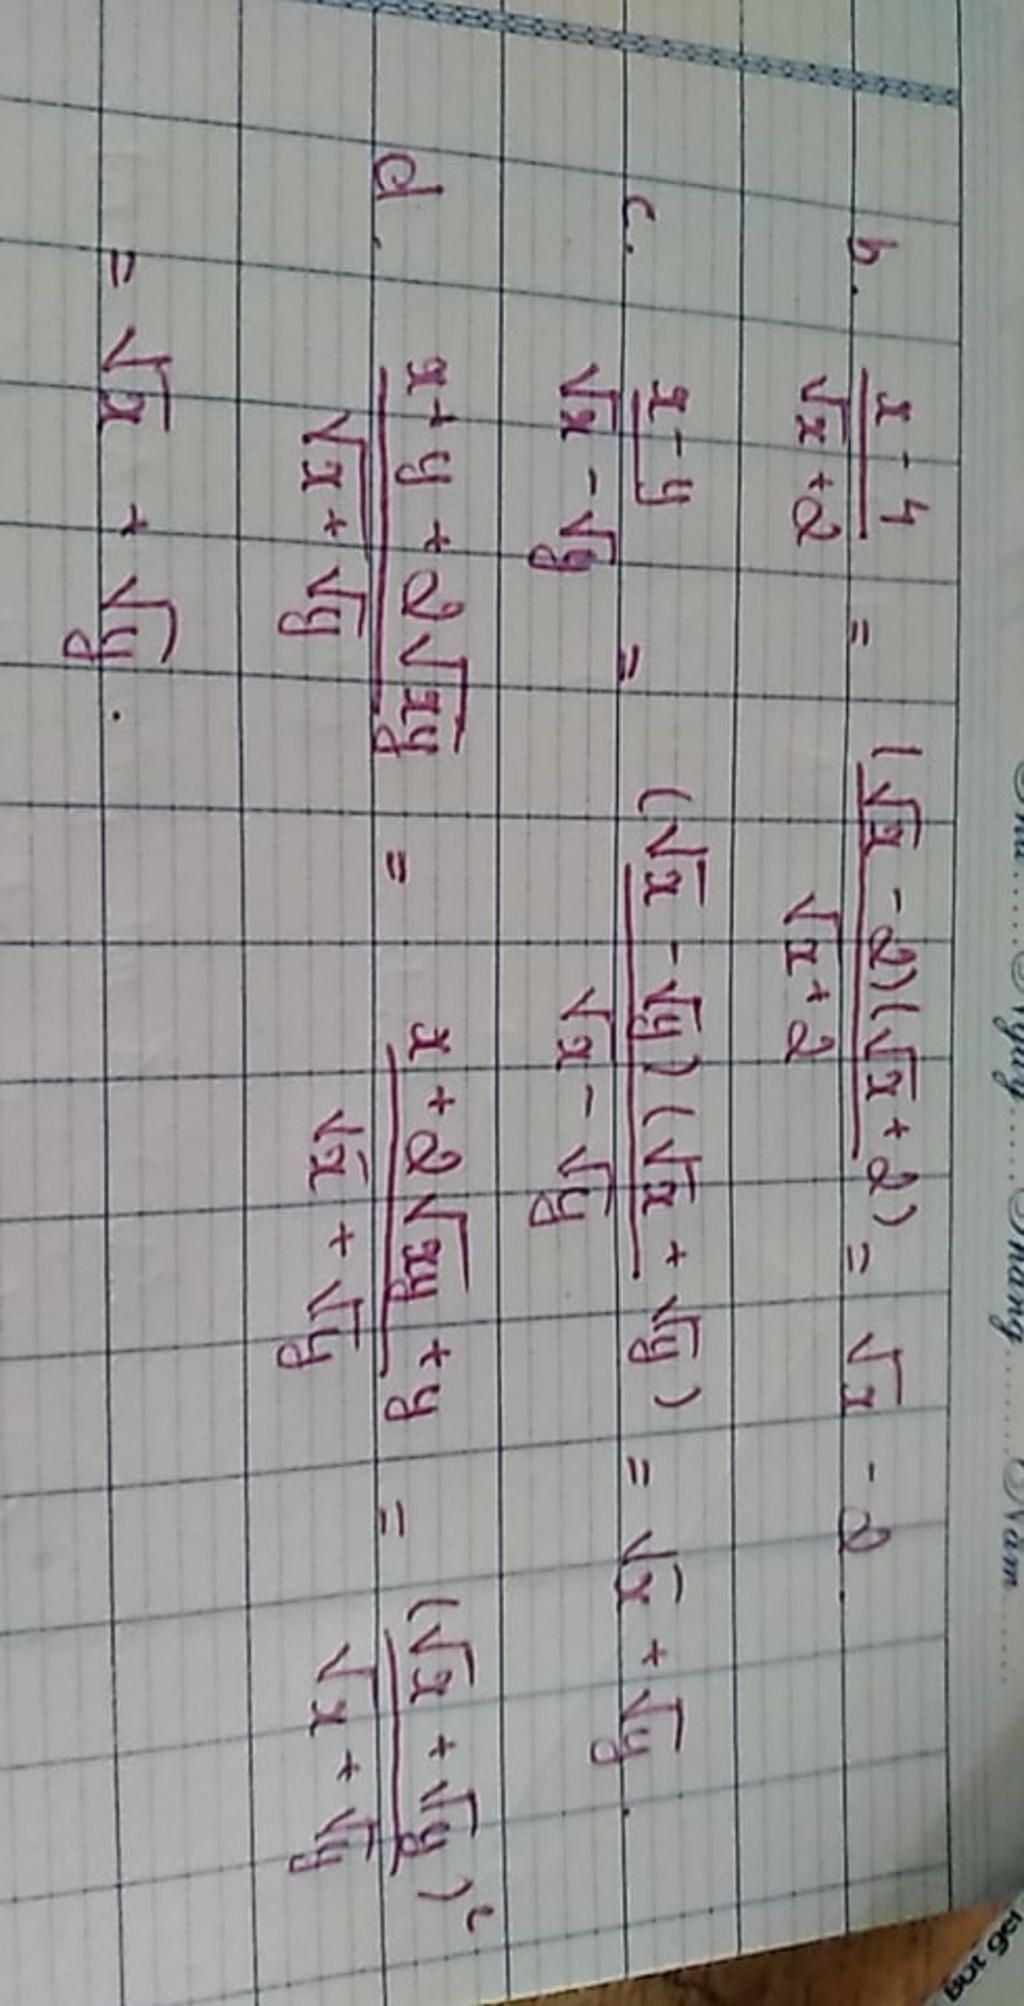 Thứ.........Ngày.........Tháng.........Năm.........
b. \frac{x-4}{\sqrt{x}+2} = \frac{(\sqrt{x}-2)(\sqrt{x}+2)}{\sqrt{x}+2} = \sqrt{x} - 2.
c. \frac{x-y}{\sqrt{x}-\sqrt{y}} = \frac{(\sqrt{x}-\sqrt{y})(\sqrt{x}+\sqrt{y})}{\sqrt{x}-\sqrt{y}} = \sqrt{x}+\sqrt{y}.
d. \frac{x+y+2\sqrt{xy}}{\sqrt{x}+\sqrt{y}} = \frac{x+2\sqrt{xy}+y}{\sqrt{x}+\sqrt{y}} = \frac{(\sqrt{x}+\sqrt{y})^2}{\sqrt{x}+\sqrt{y}}
= \sqrt{x} + \sqrt{y}.